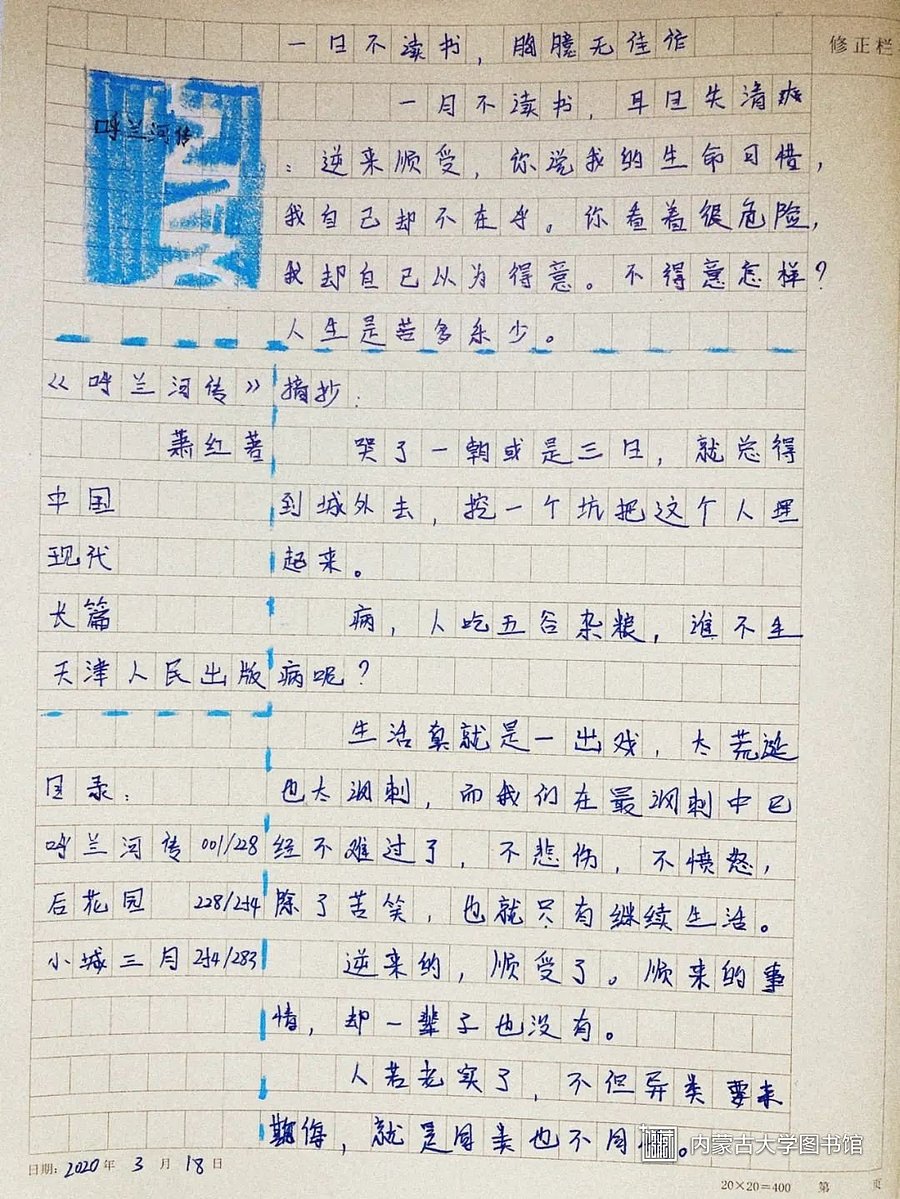 一日不读书，胸臆无佳作
修正栏
一月不读书，耳目失清爽
呼兰河传
：逆来顺受，你说我的生命可惜，
我自己却不在乎。你看着很危险，
我却自己以为得意。不得意怎样？
人生是苦多乐少。
《呼兰河传》
萧红著
中国
现代
长篇
天津人民出版
目录：
呼兰河传 001/228
后花园 228/254
小城三月 254/283
摘抄：
哭了一朝或是三日，就总得
到城外去，挖一个坑把这个人埋
起来。
病，人吃五谷杂粮，谁不生
病呢？
生活真就是一出戏，太荒诞
也太讽刺，而我们在最讽刺中已
经不难过了，不悲伤，不愤怒，
除了苦笑，也就只有继续生活。
逆来的，顺受了。顺来的事
情，却一辈子也没有。
人若老实了，不但异类要来
欺侮，就是同类也不同。
内蒙古大学图书馆
日期：2020年3月18日
20×20=400 第 页